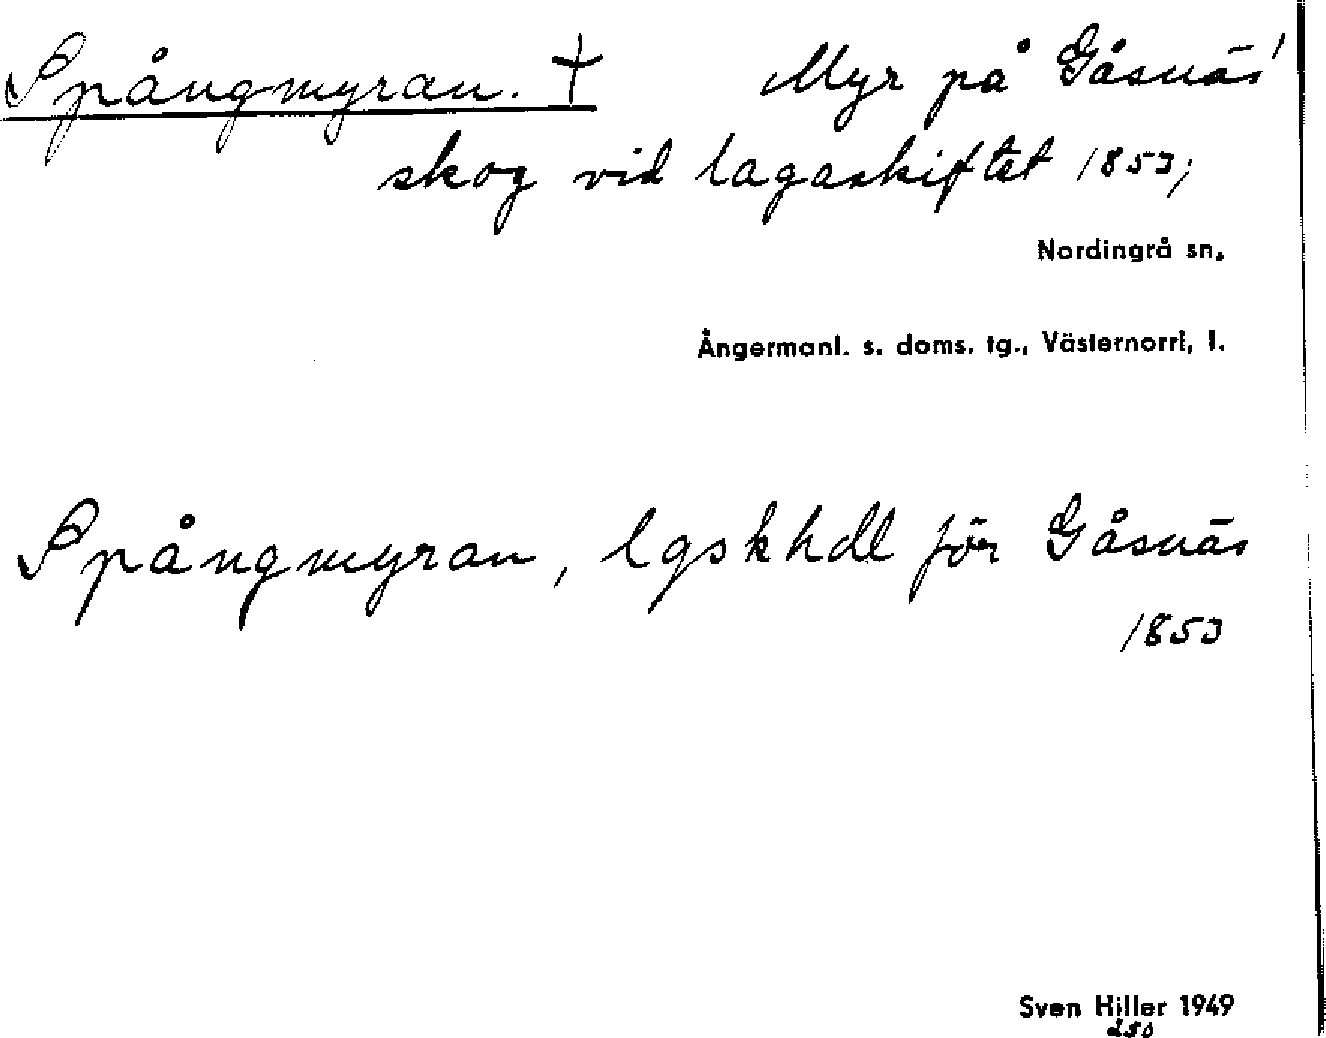 Spångmyran. † Myr på Gåsnäs'
skog vid lagaskiftet 1853;
Nordingrå sn,
Ångermanl. s. doms. tg., Västernorrl, l.
Spångmyran, lgskhdl för Gåsnäs
1853
Sven Hiller 1949
250